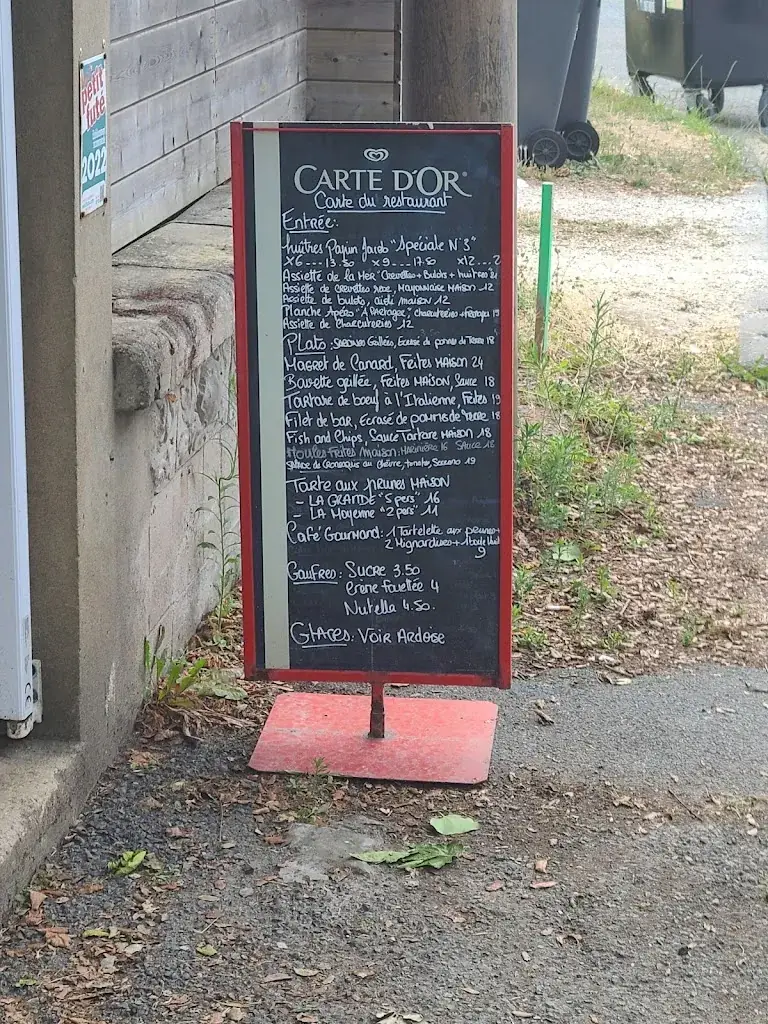 petit
futé
2022
CARTE D'OR
Carte du restaurant
Entrée:
Huîtres "Spéciale N°3"
x6 --- 13.50 x9 --- 17.50 x12...2
Assiette de la Mer Crevettes + Bulots + huitres
Assiette de crevettes rose, Mayonnaise MAISON 12
Assiette de bulots, aïoli maison 12
Planche Apéro "A Partager", charcuteries + fromages 19
Assiette de Charcuteries 12
Plats: Ecrasé de pomme de Terre 18
Magret de Canard, Frites MAISON 24
Bavette grillée, Frites MAISON, Sauce 18
Tartare de boeuf à l'Italienne, Frites 19
Filet de bar, Ecrasé de pommes de Terre 18
Fish and Chips, Sauce Tartare MAISON 18
Moules Frites Maison: Marinière 16 SAUCE 18
Salade de Croustillants au Chèvre, tomates, 19
Tarte aux prunes MAISON
- LA GRANDE "5 pers" 16
- LA Moyenne "2 pers" 11
Café Gourmand: 1 Tartelette aux prunes+
2 Mignardises + 1 boule
9
Gaufres: Sucre 3.50
Crème fouettée 4
Nutella 4.50.
Glaces: Voir Ardoise